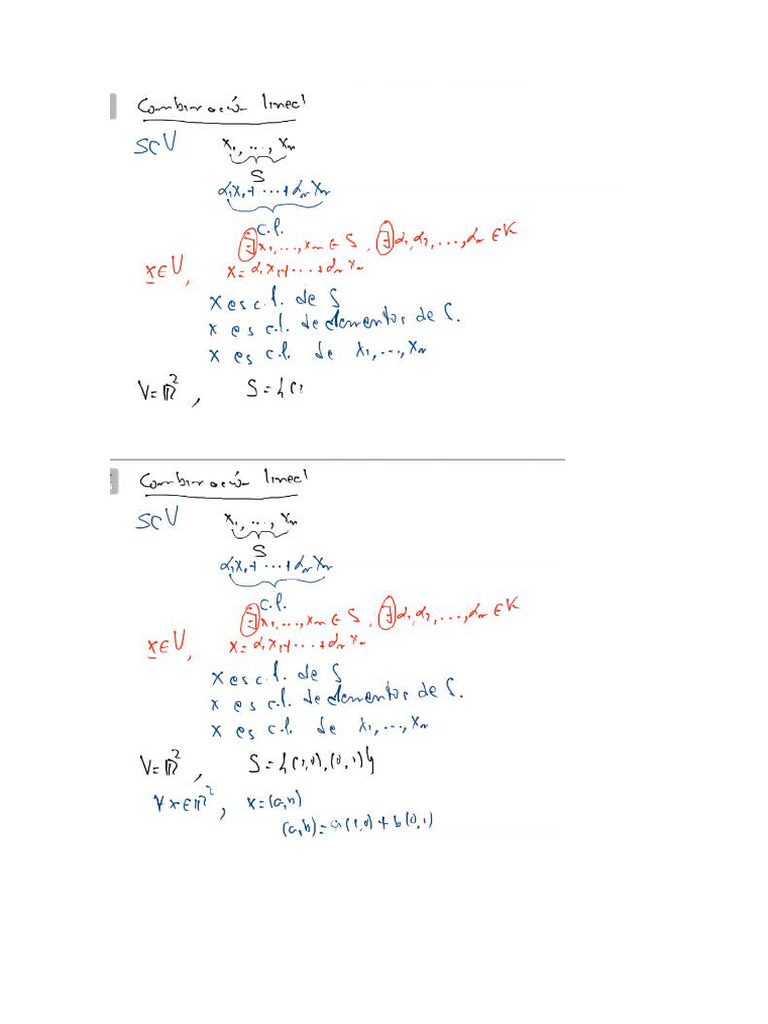 Combinación lineal
S⊂V x₁, ..., xₙ
S
α₁x₁+...+αₙxₙ
c.l.
∃ x₁,...,xₙ ∈ S, ∃ α₁, α₂, ..., αₙ ∈ K
x∈V, x=α₁x₁+...+αₙxₙ
x es c.l. de S
x es c.l. de elementos de S.
x es c.l. de x₁, ..., xₙ
V=ℝ², S={(1
Combinación lineal
S⊂V x₁, ..., xₙ
S
α₁x₁+...+αₙxₙ
c.l.
∃ x₁,...,xₙ ∈ S, ∃ α₁, α₂, ..., αₙ ∈ K
x∈V, x=α₁x₁+...+αₙxₙ
x es c.l. de S
x es c.l. de elementos de S.
x es c.l. de x₁, ..., xₙ
V=ℝ², S={(1,0),(0,1)}
∀x∈ℝ², x=(a,b)
(a,b)=a(1,0)+b(0,1)